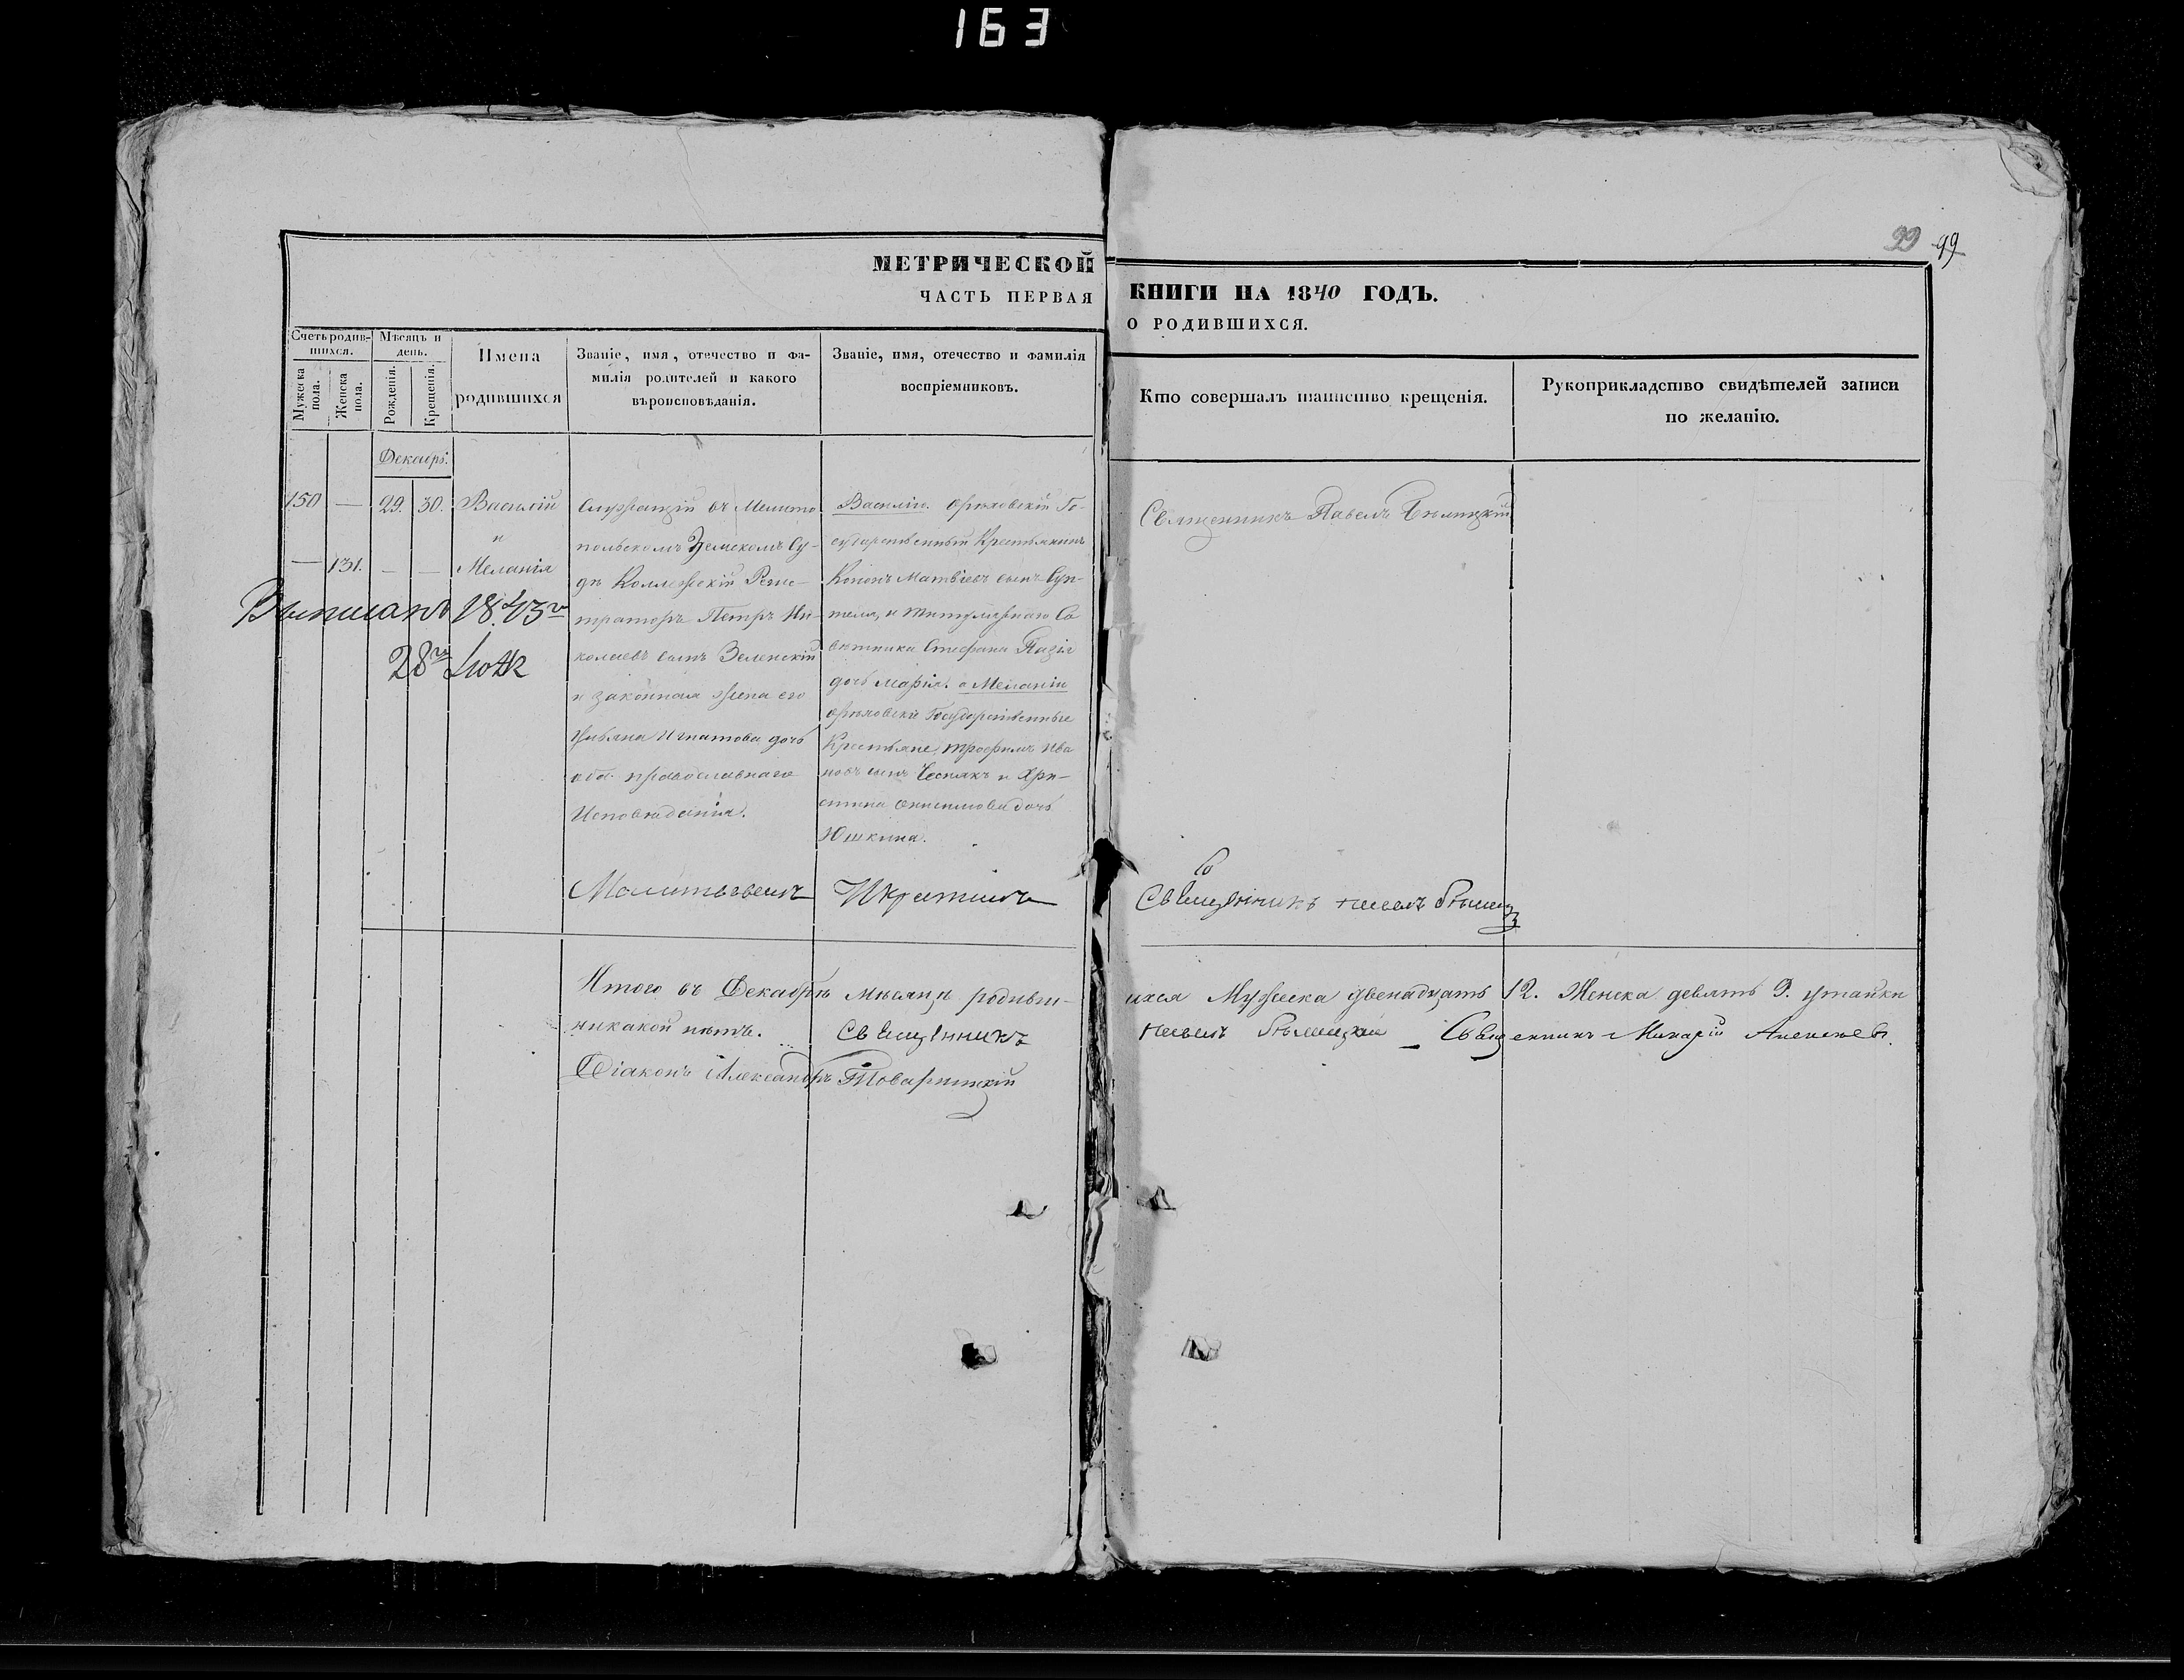 163
99 99
МЕТРИЧЕСКОЙ
ЧАСТЬ ПЕРВАЯ
КНИГИ НА 1840 ГОДЪ.
О РОДИВШИХСЯ.
Счетъ родив-
шихся.
Мужеска
пола.
Женска
пола.
Мѣсяцъ и
день.
Рожденія.
Крещенія.
Имена
родившихся
Званіе, имя, отечество и фа-
милія родителей и какого
вѣроисповѣданія.
Званіе, имя, отечество и фамилія
воспріемниковъ.
Кто совершалъ таинство крещенія.
Рукоприкладство свидѣтелей записи
по желанію.
150 — 29. 30. Василій
и
— 131. — — Меланія
Выписанъ 1843го
28го
Служащій въ Мелито
польскомъ Земскомъ Су-
дѣ Коллежскій Реги-
страторъ Петръ Ни-
колаевъ сынъ Зеленскій
и законная жена его
Ульяна Игнатова дочь
оба православнаго
Исповѣданія.
Василію. Орѣховскій Го-
сударственный Крестьянинъ
Кононъ Матвѣевъ сынъ
и Титулярнаго Со
вѣтника Стефана
дочь Марія. а Меланіи
Орѣховскіе Государственные
Крестьяне, Трофимъ Ива
новъ сынъ и Хри-
стина дочь
Юшкина.
Священникъ Павелъ Бѣлицкій
Молитвовалъ И крестилъ
Священникъ Павелъ
Итого въ Декабрѣ мѣсяцѣ родивш-
ихся Мужеска двенадцать 12. Женска девять 9. утайки
никакой нѣтъ. Священникъ
Павелъ Бѣлицкій Священникъ Макарій Алексѣевъ.
Діаконъ Александръ Товарницкій